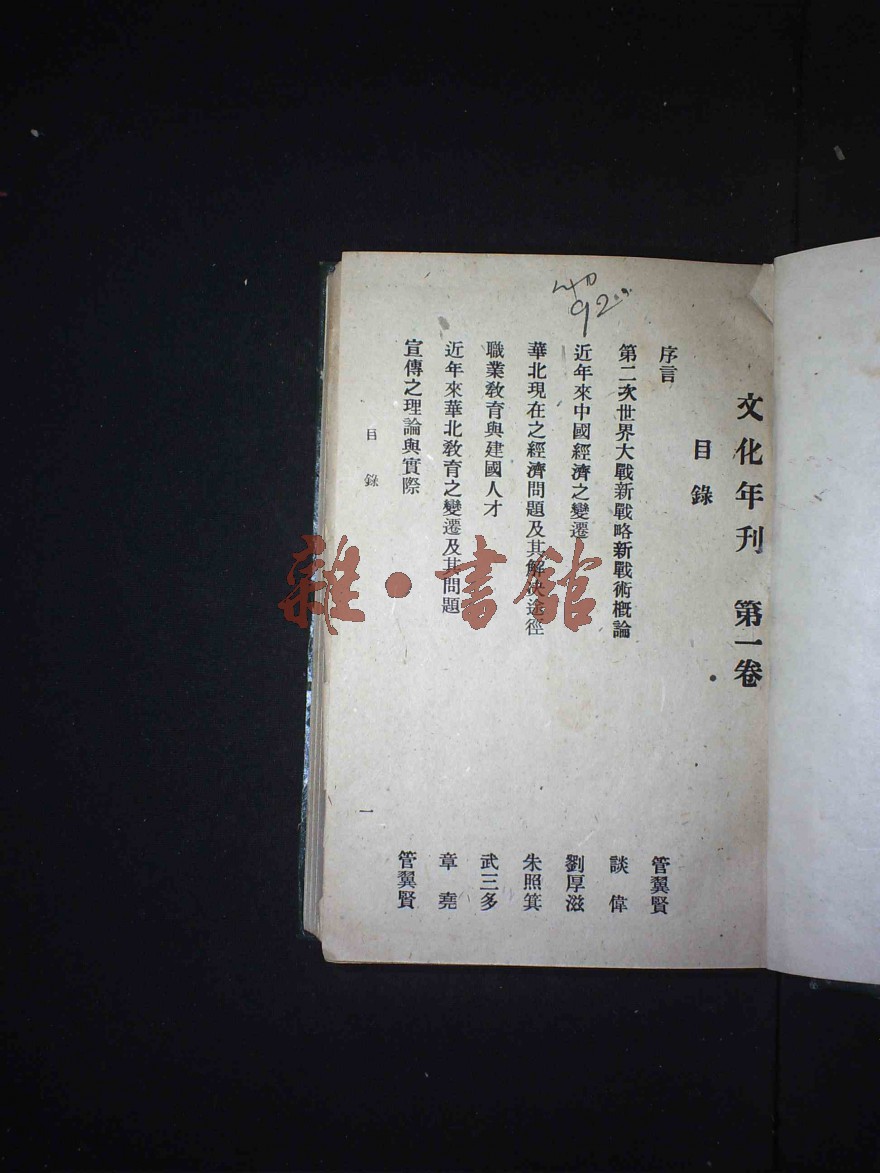 文化年刊　第一卷
目錄
序言　管翼賢
第二次世界大戰新戰略新戰術概論　談偉
近年來中國經濟之變遷　劉厚滋
華北現在之經濟問題及其解決途徑　朱照箕
職業教育與建國人才　武三多
近年來華北教育之變遷及其問題　章堯
宣傳之理論與實際　管翼賢
目錄　一
92
雜·書館